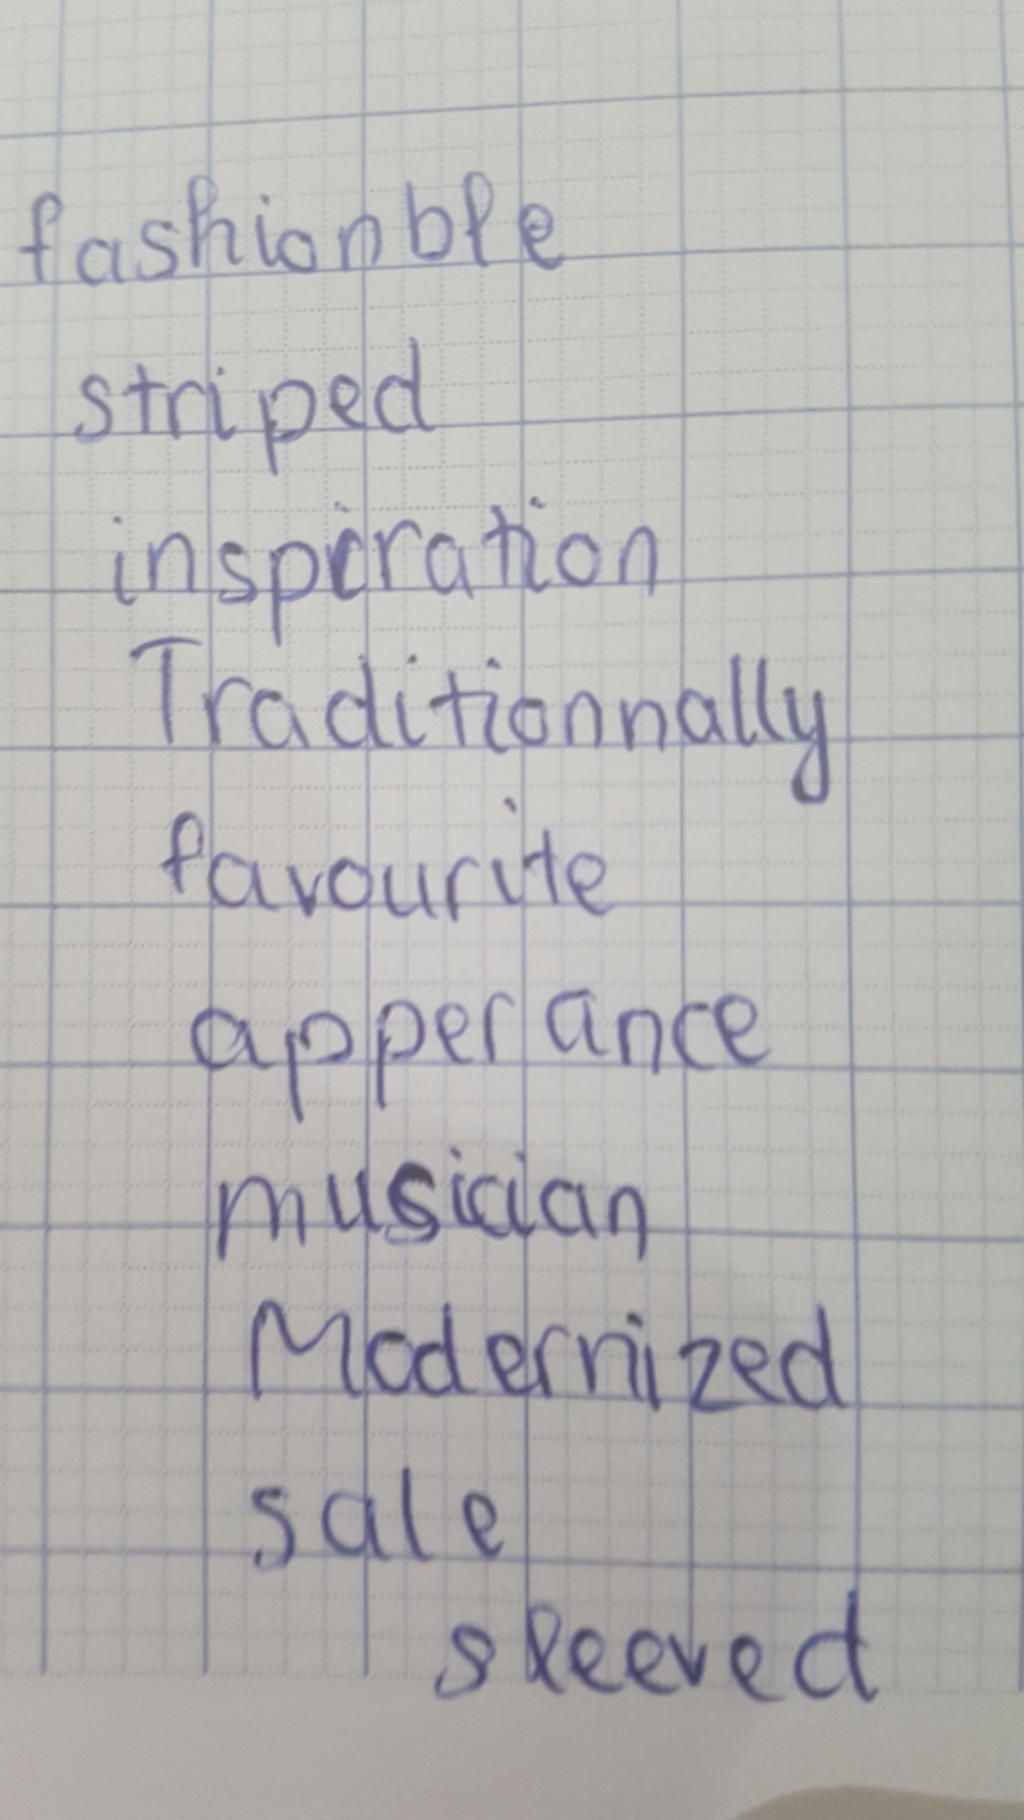 fashionble
striped
inspiration
Traditionnally
favourite
apperance
musician
Modernized
sale
sleeved